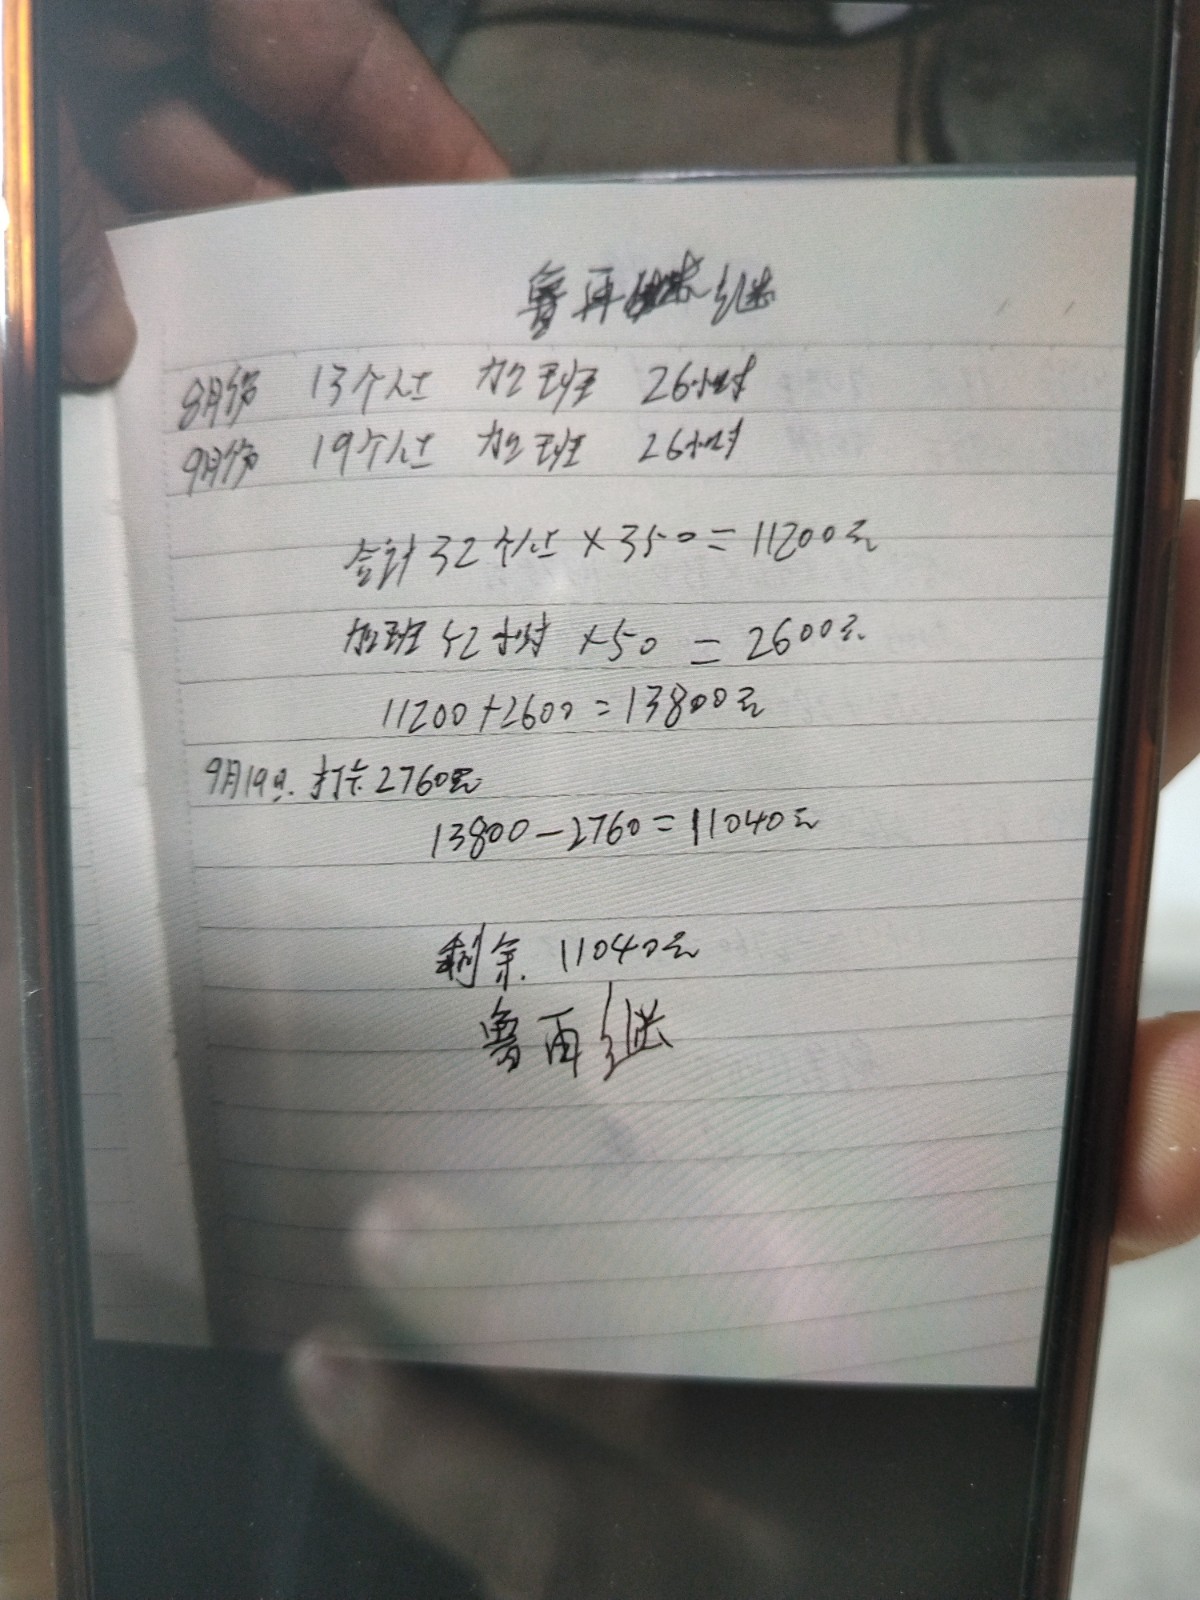 鲁再继
8月份 13个仩 加班 26小时
9月份 19个仩 加班 26小时
合计32个仩×350=11200元
加班52小时×50=2600元
11200+2600=13800元
9月19日.打卡2760元
13800-2760=11040元
剩余.11040元
鲁再继